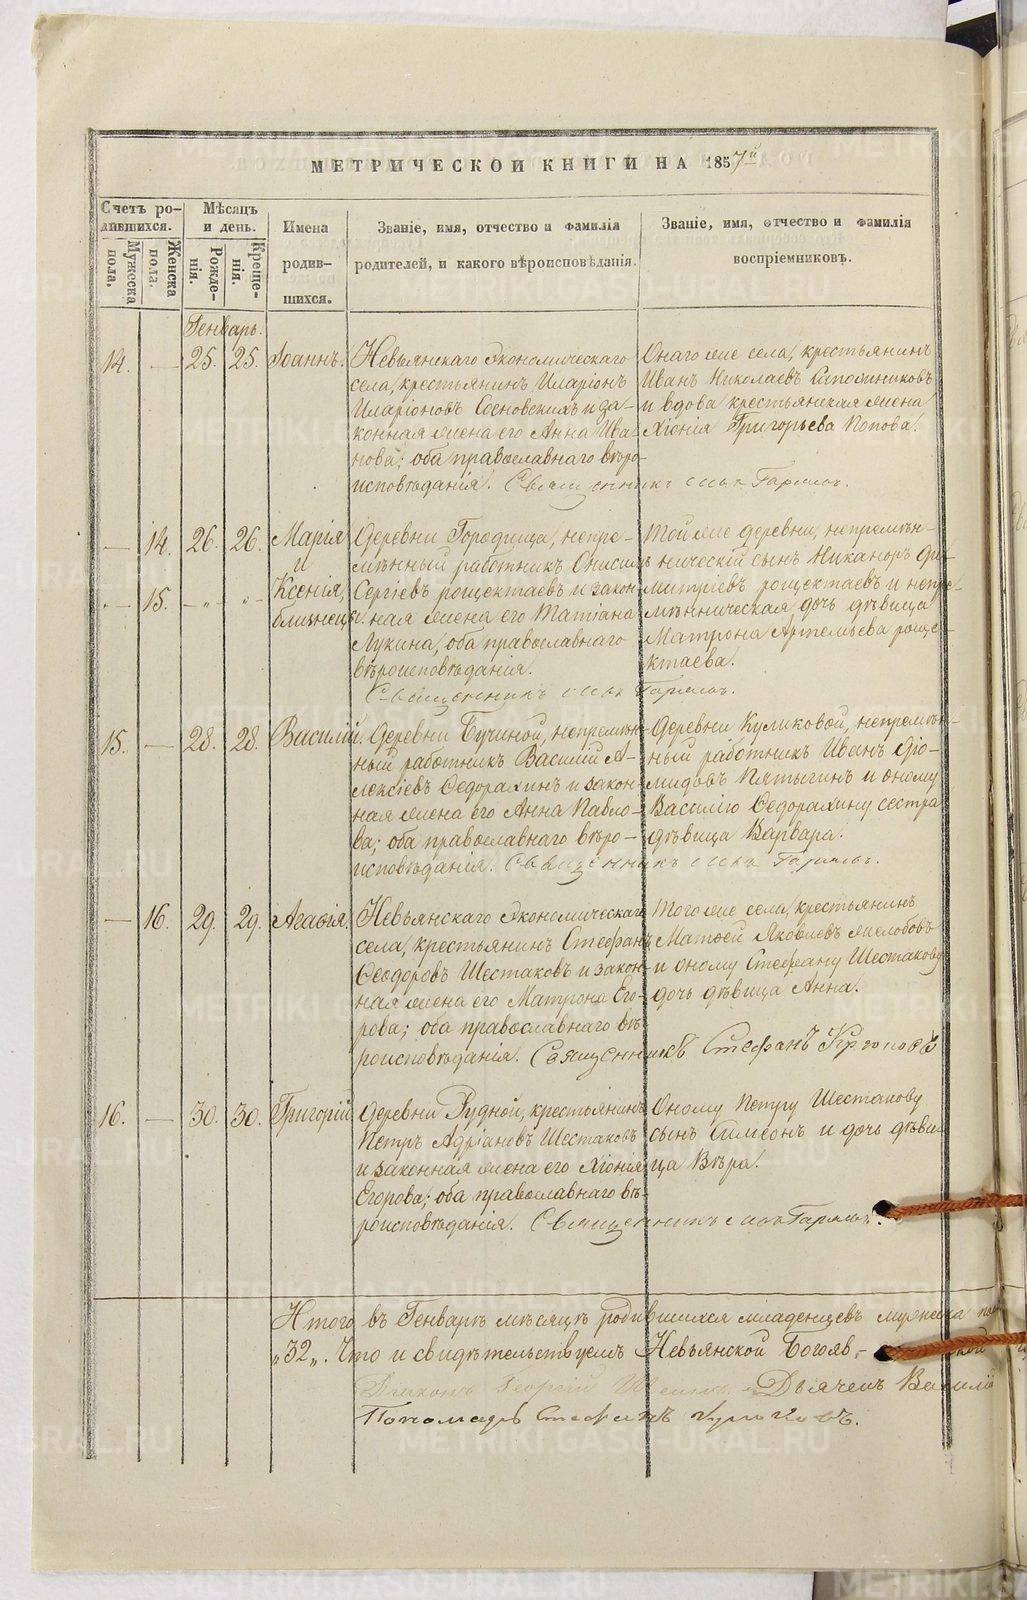 МЕТРИЧЕСКОЙ КНИГИ НА 1857й
Счетъ родившихся.
Мѣсяцъ и день.
Имена родившихся.
Званіе, имя, отчество и фамилія родителей, и какого вѣроисповѣданія.
Званіе, имя, отчество и фамилія воспріемниковъ.
Мужеска пола.
Женска пола.
Рожденія.
Крещенія.
Генварь.
14. — 25. 25. Іоаннъ.
Невьянскаго Экономическаго
села, крестьянинъ Иларіонъ
Иларіоновъ Сосновскихъ и за-
конная жена его Анна Ива-
нова; оба православнаго вѣро-
исповѣданія. Священникъ
Онаго же села, крестьянинъ
Иванъ Николаевъ Сапожниковъ
и вдова крестьянская жена
Хіонія Григорьева Попова.
— 14. 26. 26. Марія
и
— 15. — „ — „ — Ксенія,
близнецы.
Деревни Городища, непре-
мѣнный работникъ Онисимъ
Сергіевъ рощектаевъ и закон-
ная жена его Татіана
Лукина, оба православнаго
вѣроисповѣданія.
Священникъ
Той же деревни, непремѣн-
ническій сынъ Никаноръ Ди-
митріевъ рощектаевъ и непре-
мѣнническая дочь дѣвица
Матрона Артемьева роще-
ктаева.
15. — 28. 28. Василій.
Деревни Бучиной, непремѣн-
ный работникъ Василій А-
лексіевъ Ѳедорахинъ и закон-
ная жена его Анна Павло-
ва; оба православнаго вѣро-
исповѣданія. Священникъ
Деревни Куликовой, непремѣн-
ный работникъ Иванъ Діо-
мидовъ Пятыгинъ и оному
Василію Ѳедорахину сестра
дѣвица Варвара.
— 16. 29. 29. Агаѳія.
Невьянскаго Экономическаго
села, крестьянинъ Стефанъ
Ѳеодоровъ Шестаковъ и закон-
ная жена его Матрона Его-
рова; оба православнаго вѣ-
роисповѣданія. Священникъ Стефанъ
Того же села, крестьянинъ
Матѳей Яковлевъ
и оному Стефану Шестакову
дочь дѣвица Анна.
16. — 30. 30. Григорій
Деревни Рудной, крестьянинъ
Петръ Адріановъ Шестаковъ
и законная жена его Хіонія
Егорова; оба православнаго вѣ-
роисповѣданія. Священникъ
Оному Петру Шестакову
сынъ Симеонъ и дочь дѣви-
ца Вѣра.
Итого въ Генварѣ мѣсяцѣ родившихся младенцевъ мужеска
„32„. Что и свидѣтельствуемъ Невьянской Богояв-
Діаконъ Георгій Дьячекъ
Пономарь Стефанъ
METRIKI.GASO-URAL.RU